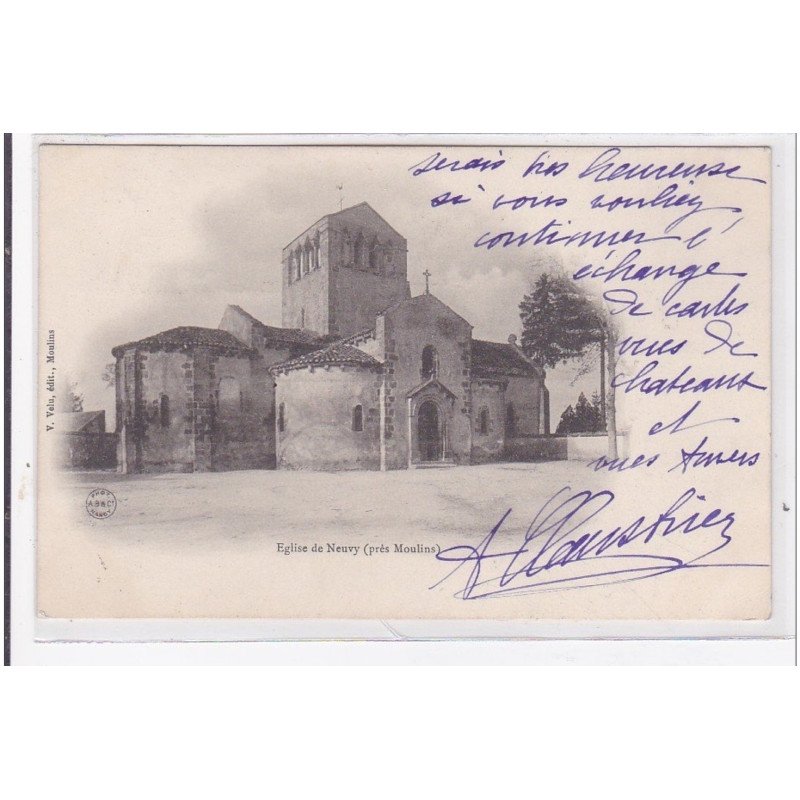 serais très heureuse
si vous vouliez
continuer l'
échange
de cartes
vues de
chateaux
et
vues
V. Velu, édit., Moulins
PHOT
A.B.& Cie
NANCY
Eglise de Neuvy (près Moulins)